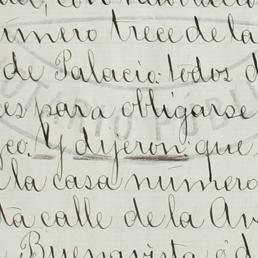 numero trece de la
de Palacio: todos d
es para obligarse
co. Y dijeron: que
la casa numero
ta calle de la Av
Buenavista, ó d